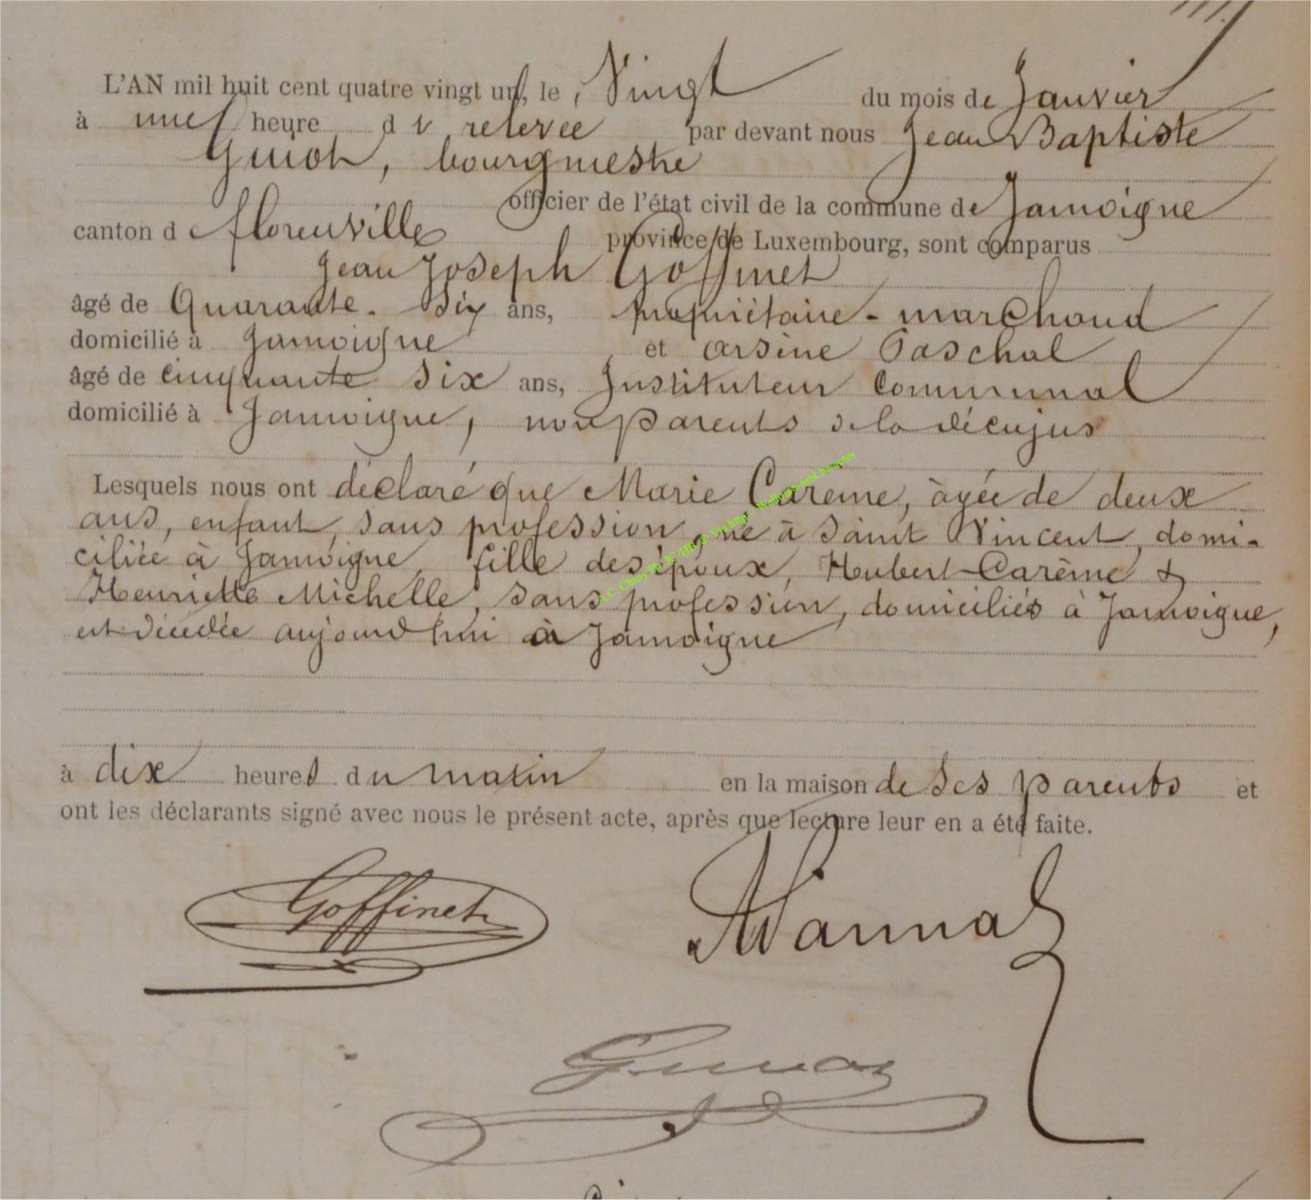 L'AN mil huit cent quatre vingt un, le Vingt du mois de Janvier
à une heure de relevée par devant nous Jean Baptiste
Guiot, bourgmestre
officier de l'état civil de la commune de Jamoigne
canton de florenville province de Luxembourg, sont comparus
Jean Joseph Goffinet
âgé de Quarante-six ans, propriétaire-marchand
domicilié à Jamoigne et arsène Paschal
âgé de cinquante six ans, Instituteur Communal
domicilié à Jamoigne, non parents de la décujus
Lesquels nous ont déclaré que Marie Carème, àgée de deux
ans, enfant, sans profession, né à Saint Vincent, domi-
ciliée à Jamoigne, fille des époux, Hubert Carème &
Henriette Michelle, sans profession, domiciliés à Jamoigne,
est décédée aujourd'hui à Jamoigne
à dix heures du matin en la maison de ses parents et
ont les déclarants signé avec nous le présent acte, après que lecture leur en a été faite.
Goffinet
Guiot